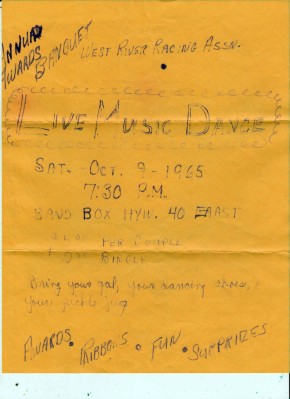 ANNUAL
AWARDS
BANQUET
WEST RIVER RACING ASSN.
LIVE MUSIC DANCE
SAT. OCT. 9 - 1965
7:30 P.M.
BAND BOX HYW. 40 EAAST
PER COUPLE
SINGLE
Bring your gal, your dancing shoes, &
your jug
AWARDS • RIBBONS • FUN • SURPRIZES